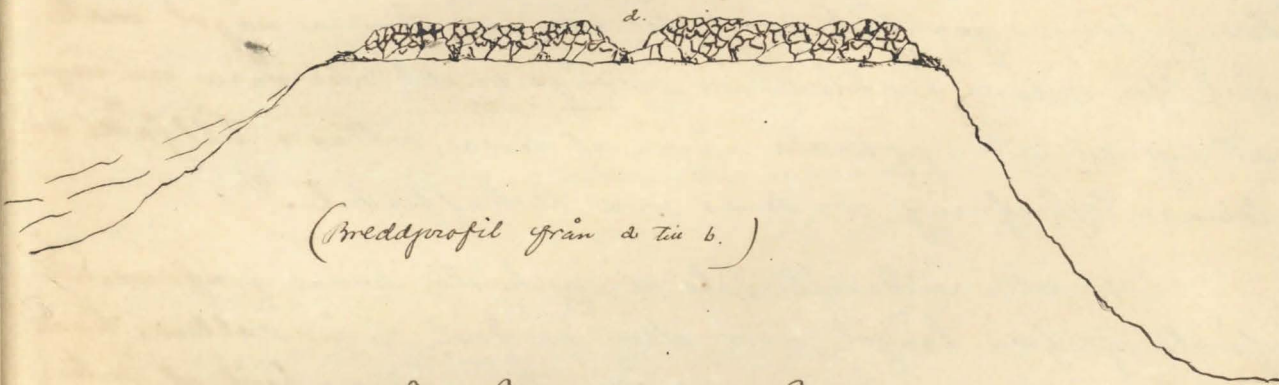 d.
(Breddprofil från a till b.)